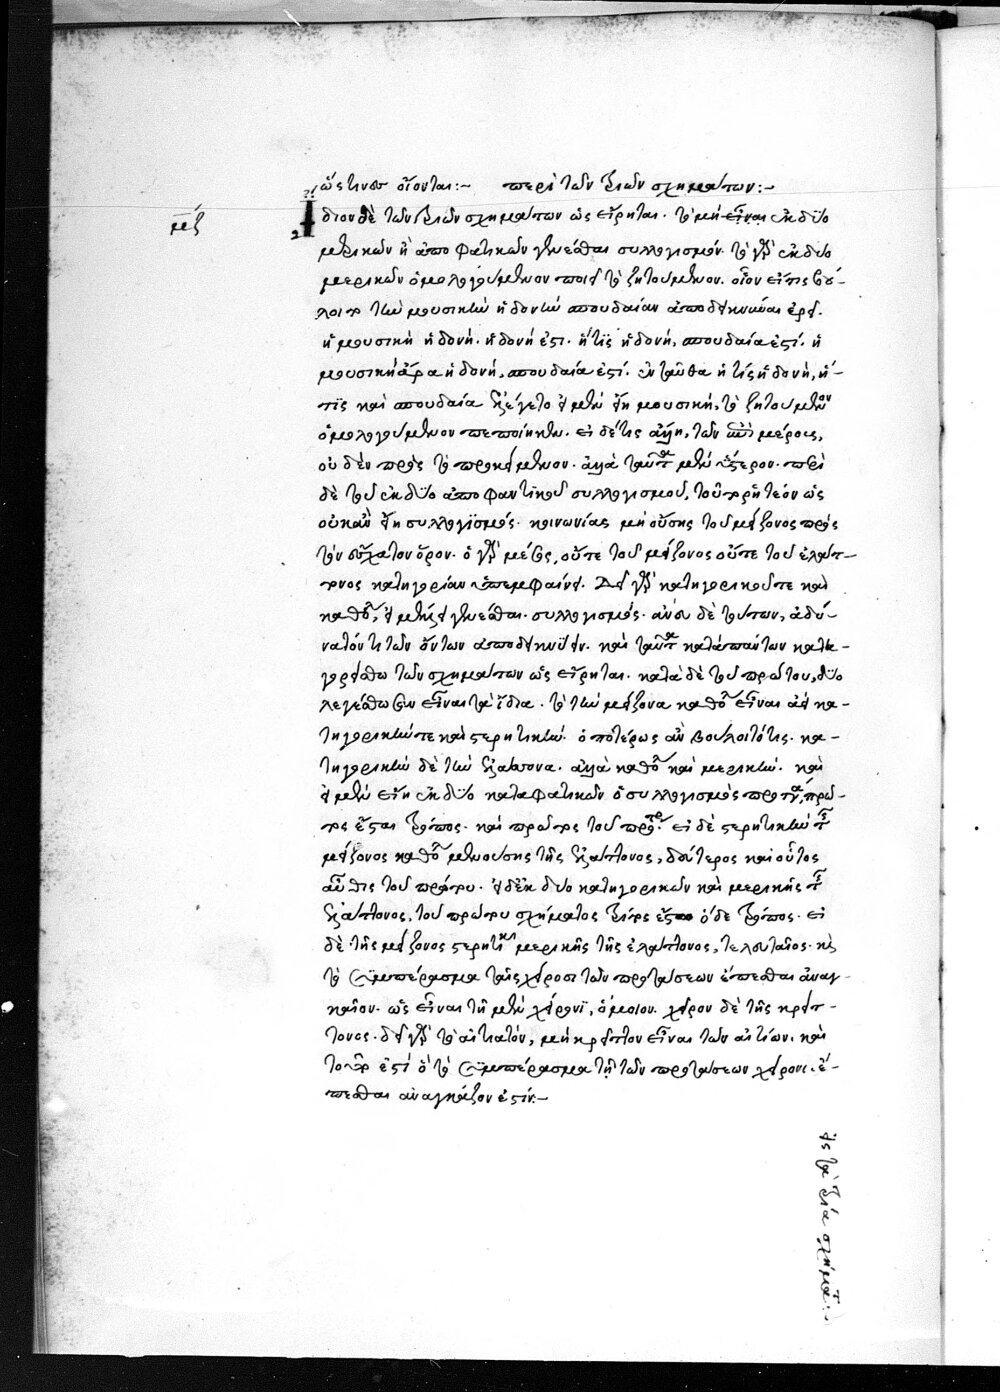 ὥς τινες οἴονται:~ περὶ τῶν τριῶν σχημάτων:~
Ἴδιον δὲ τῶν τριῶν σχημάτων ὡς εἴρηται. τὸ μὴ εἶναι ἐκ δύο
μερικῶν ἢ ἀποφατικῶν γενέσθαι συλλογισμόν. τὸ γὰρ ἐκ δύο
μερικῶν ὁμολογούμενον ποιεῖ τὸ ζητούμενον. οἷον εἴ τις βού-
λοιτο τὴν μουσικὴν ἡδονὴν σπουδαίαν ἀποδεικνύναι ἐρεῖ.
ἡ μουσικὴ ἡδονή. ἡδονή ἐστι. ἥ τις ἡδονή, σπουδαία ἐστί. ἡ
μουσικὴ ἄρα ἡδονή, σπουδαία ἐστί. ἐνταῦθα ἡ τίς ἡδονή, ἥ-
τις καὶ σπουδαία ἐλέγετο εἰ μὲν εἴη μουσική, τὸ ζητούμενον
ὁμολογούμενον πεποίηκεν. εἰ δέ τις ἄλλη, τῶν ἐπὶ μέρους,
οὐδὲν πρὸς τὸ προκείμενον. ἀλλὰ ταῦτα μὲν ὕστερον. περὶ
δὲ τοῦ ἐκ δύο ἀποφαντικοῦ συλλογισμοῦ, τοῦτο ῥητέον ὡς
οὐκ ἂν εἴη συλλογισμός. κοινωνίας μὴ οὔσης τοῦ μείζονος πρὸς
τὸν ἔσχατον ὅρον. ὁ γὰρ μέσος, οὔτε τοῦ μείζονος οὔτε τοῦ ἐλάτ-
τονος κατηγορίαν ὑπεμφαίνει. Δεῖ γὰρ κατηγορικοῦ τε καὶ
καθόλου, εἰ μέλλει γενέσθαι συλλογισμός. ἄνευ δὲ τούτων, ἀδύ-
νατόν τι τῶν ὄντων ἀποδεικνύειν. καὶ ταῦτα κατὰ πάντων κατη-
γορείσθω τῶν σχημάτων ὡς εἴρηται. κατὰ δὲ τοῦ πρώτου, δύο
λεγέσθωσαν εἶναι τὰ ἴδια. τὸ τὴν μείζονα καθόλου εἶναι ἀεὶ κα-
τηγορικήν τε καὶ στερητικήν. ὁποτέρως ἂν βούλοιτό τις. κα-
τηγορικὴν δὲ τὴν ἐλάττονα. ἀλλὰ καθόλου καὶ μερικήν. καὶ
εἰ μὲν εἴη ἐκ δύο καταφατικῶν ὁ συλλογισμὸς προτάσεων, πρῶ-
τος ἔσται τρόπος. καὶ πρῶτος τοῦ πρώτου. εἰ δὲ στερητικὴν τῆς
μείζονος καθόλου μενούσης τῆς ἐλάττονος, δεύτερος καὶ οὗτος
αὖθις τοῦ πρώτου. εἰ δ' ἐκ δύο κατηγορικῶν καὶ μερικῆς τῆς
ἐλάττονος, τοῦ πρώτου σχήματος τρίτος ἔσται ὅδε τρόπος. εἰ
δὲ τῆς μείζονος στερητικῆς μερικῆς τῆς ἐλάττονος, τελευταῖος. καὶ
τὸ συμπέρασμα ταῖς χείροσι τῶν προτάσεων ἕπεσθαι ἀναγ-
καῖον. ὡς εἶναι τῇ μὲν χείρονι, ὅμοιον. χεῖρον δὲ τῆς κρείτ-
τονος. δεῖ γὰρ τὸ αἰτιατόν, μὴ κρεῖττον εἶναι τῶν αἰτίων. καὶ
τοῦτο ἐστὶ ὃ τὸ συμπέρασμα τῇ τῶν προτάσεων χείρονι ἕ-
πεσθαι ἀναγκάζον ἐστίν:~
εἰς τὰ τρία σχήματα:~